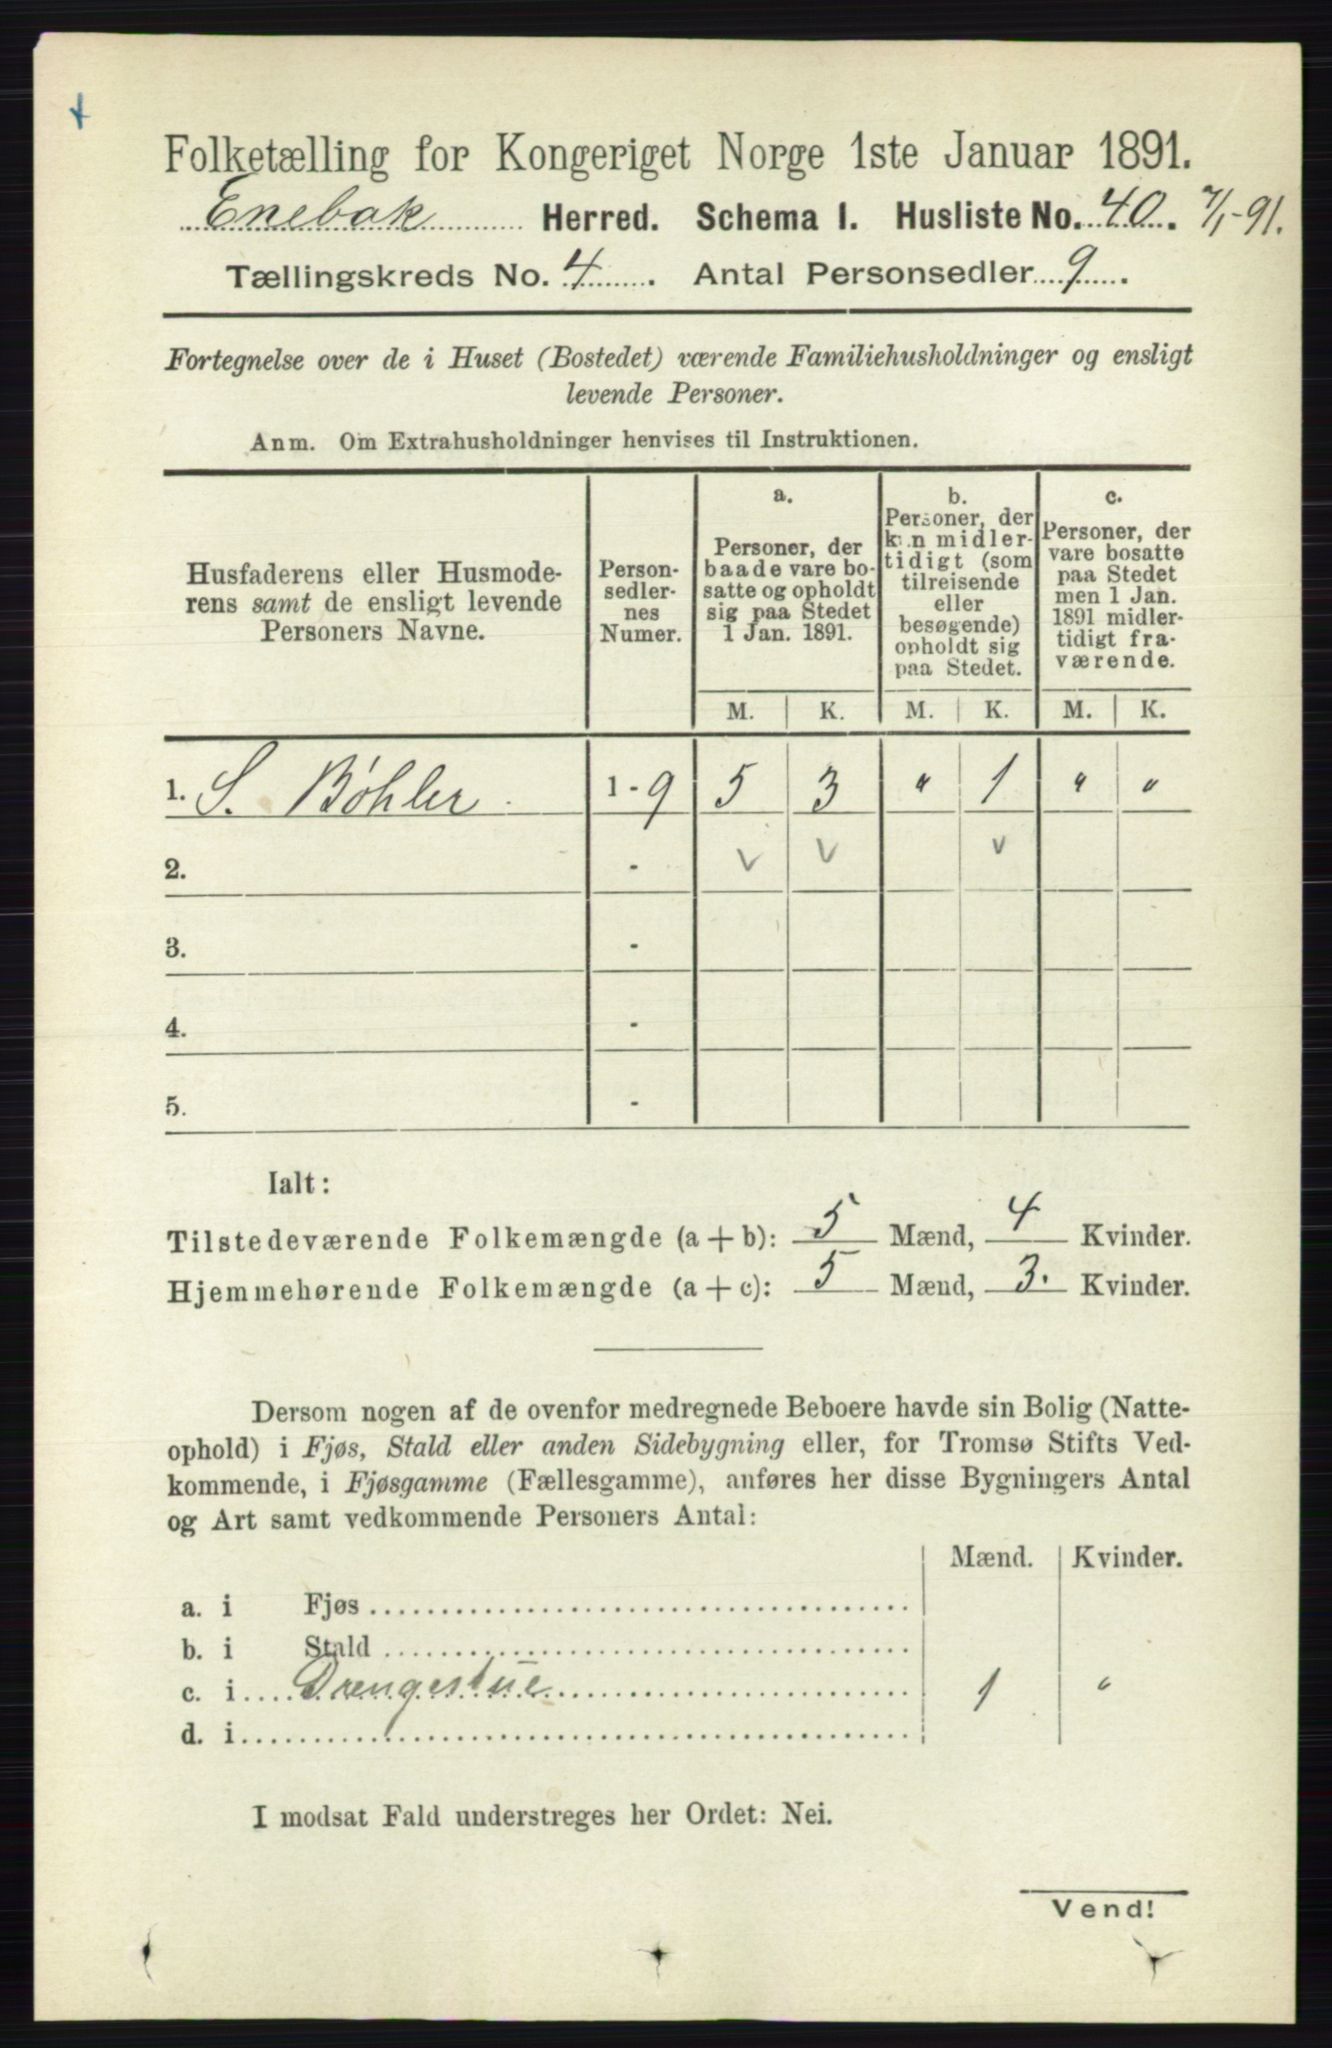 Folketælling for Kongeriget Norge 1ste Januar 1891.
Enebak Herred. Schema I. Husliste No. 40. 7/1-91.
Tællingskreds No. 4. Antal Personsedler 9.
Fortegnelse over de i Huset (Bostedet) værende Familiehusholdninger og ensligt
levende Personer.
Anm. Om Extrahusholdninger henvises til Instruktionen.
Husfaderens eller Husmode-
rens samt de ensligt levende
Personers Navne.
Person-
sedler-
nes
Numer.
a.
Personer, der
baade vare bo-
satte og opholdt
sig paa Stedet
1 Jan. 1891.
b.
Personer, der
kun midler-
tidigt (som
tilreisende
eller
besøgende)
opholdt sig
paa Stedet.
c.
Personer, der
vare bosatte
paa Stedet
men 1 Jan.
1891 midler-
tidigt fra-
værende.
M. K. M. K. M. K.
1. S. Bøhler. 1-9 5 3 " 1 " "
2. - v v v
3. -
4. -
5. -
Ialt:
Tilstedeværende Folkemængde (a + b): 5 Mænd, 4 Kvinder.
Hjemmehørende Folkemængde (a + c): 5 Mænd, 3. Kvinder.
Dersom nogen af de ovenfor medregnede Beboere havde sin Bolig (Natte-
ophold) i Fjøs, Stald eller anden Sidebygning eller, for Tromsø Stifts Ved-
kommende, i Fjøsgamme (Fællesgamme), anføres her disse Bygningers Antal
og Art samt vedkommende Personers Antal:
Mænd. Kvinder.
a. i Fjøs
b. i Stald
c. i Drengestue 1 "
d. i
I modsat Fald understreges her Ordet: Nei.
Vend!